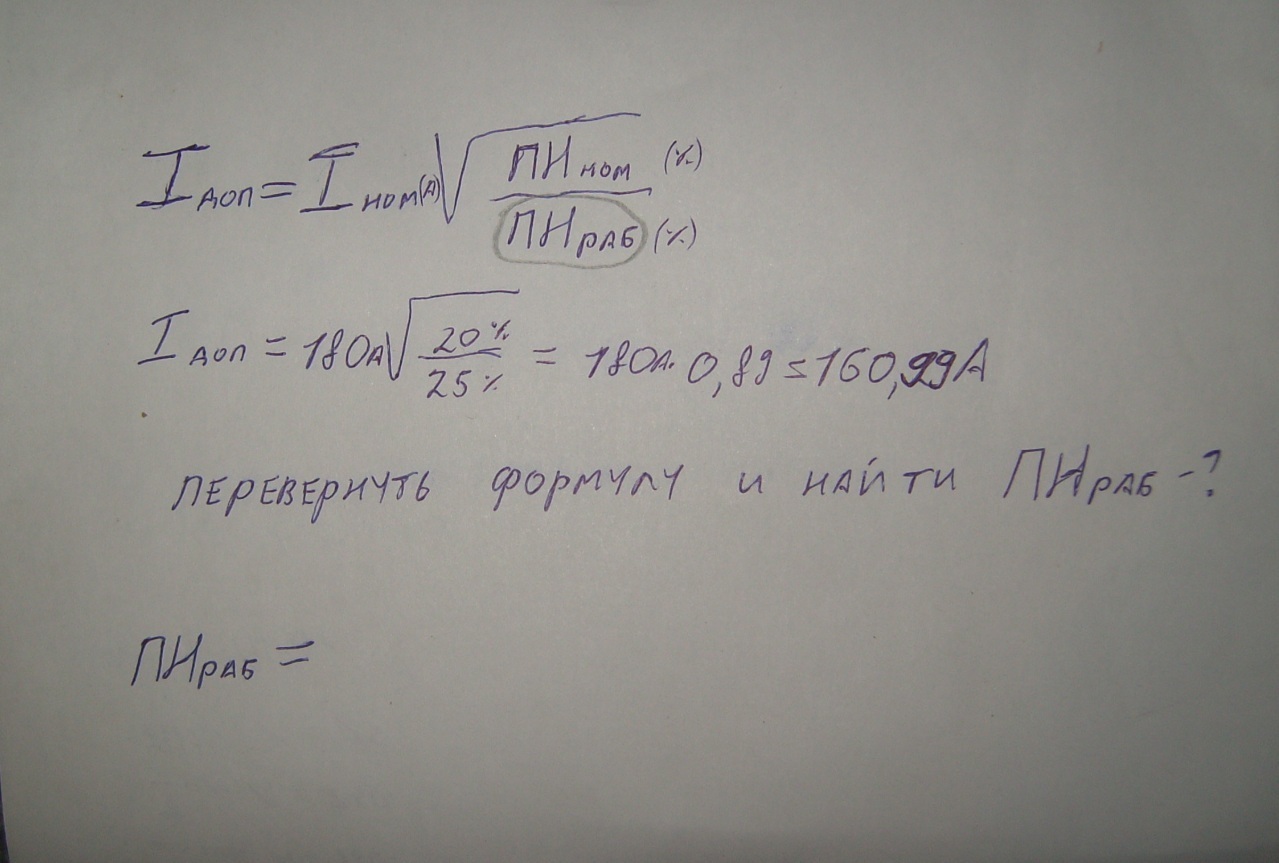 I доп = I ном(А) √ ПН ном (%) / ПН раб (%)
I доп = 180А √ 20% / 25% = 180А · 0,89 = 160,99А
ПЕРЕВЕРНУТЬ ФОРМУЛУ И НАЙТИ ПН РАБ - ?
ПН РАБ =